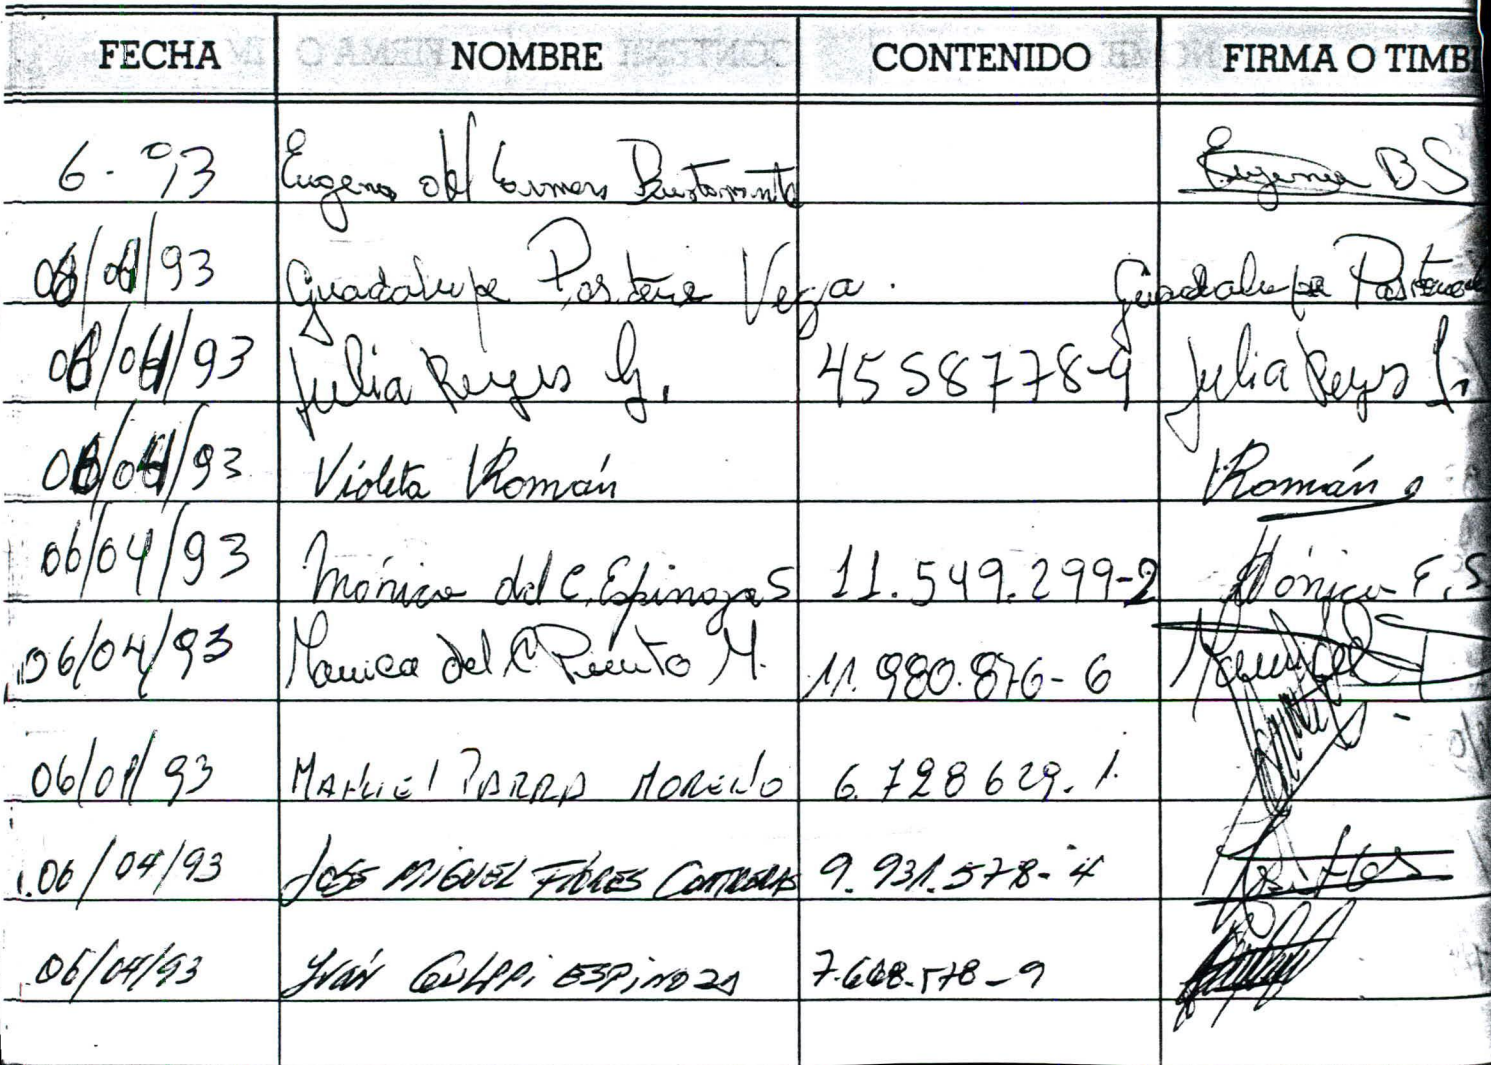 FECHA NOMBRE CONTENIDO FIRMA O TIMB
6 - 93 Eugenia del Carmen Bustamante Eugenia B S
06/04/93 Guadalupe Pastene Vega. Guadalupe Pastene
06/04/93 Julia Reyes G. 4558778-9 Julia Reyes G.
06/04/93 Violeta Román Román
06/04/93 Mónica del C. Espinoza S 11.549.299-2 Mónica E. S
06/04/93 Monica del C M. 11.980.876-6
06/04/93 MANUEL PARRA MORENO 6.728629.1
06/04/93 JOSE MIGUEL FLORES CONTRERAS 9.931.578-4
06/04/93 IVÁN ESPINOZA